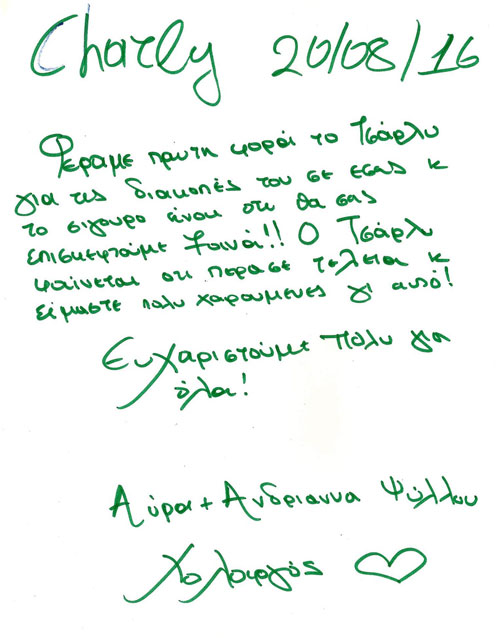 Charly 20/08/16
Φεραμε πρωτη φορα το Τσάρλυ
για τις διακοπές του σε εσας κ
το σιγουρο είναι οτι θα σας
επισκεφτούμε ξανά!! Ο Τσάρλυ
φαίνεται οτι περασε τελεια κ
είμαστε πολυ χαρουμενες γι αυτό!
Ευχαριστούμε πολυ για
όλα!
Αύρα + Ανδριαννα Ψύλλου
Χολαργός